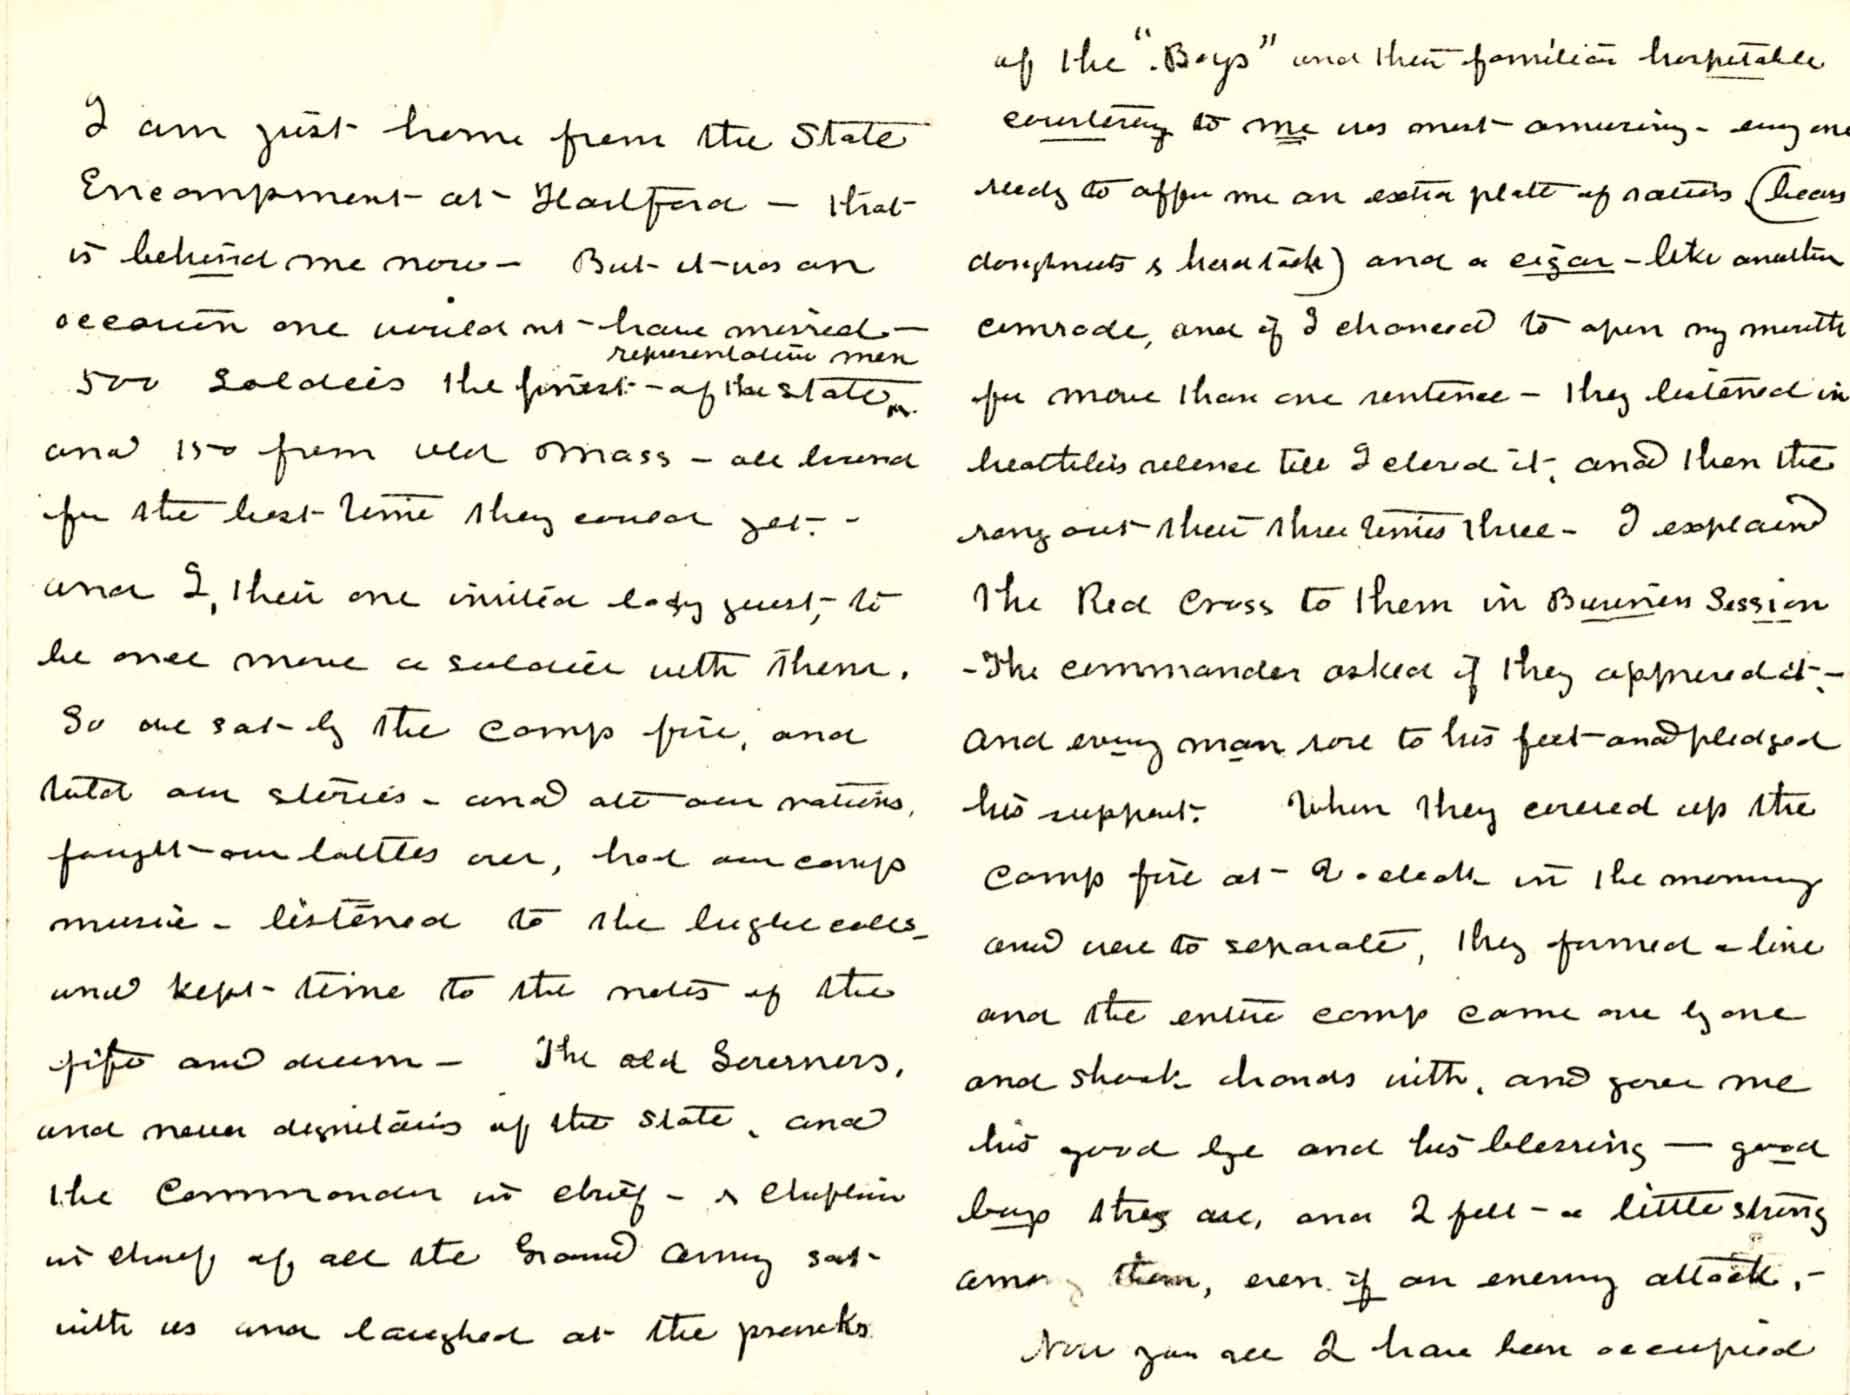 I am just home from the State
Encampment at Hartford — that
is behind me now — But it was an
occasion one would not have missed —
representative men
500 Soldiers the finest of the State
and 150 from old Mass — all bound
for the best time they could get. -
and I, their one invited lady guest, to
be once more a soldier with them.
So we sat by the camp fire, and
told our stories - and ate our rations,
fought our battles over, had our camp
music - listened to the bugle calls -
and kept time to the notes of the
fife and drum — The old Governors,
and never dignitaries of the State, and
the Commander in chief - & Chaplain
in chief of all the Grand Army sat
with us and laughed at the pranks
of the "Boys" and their familiar hospitable
courtesy to me was most amusing - every one
ready to offer me an extra plate of rations (beans
doughnuts & hardtack) and a cigar - like another
comrade, and if I chanced to open my mouth
for more than one sentence - they listened in
breathless silence till I closed it, and then the
rang out their three times three - I explained
the Red Cross to them in Business Session
- The commander asked if they approved it -
and every man rose to his feet and pledged
his support. When they covered up the
camp fire at 2 o clock in the morning
and were to separate, they formed a line
and the entire camp came one by one
and shook hands with, and gave me
his good bye and his blessing — good
boys they are, and I felt a little strong
among them, even if an enemy attack, -
Now you see I have been occupied